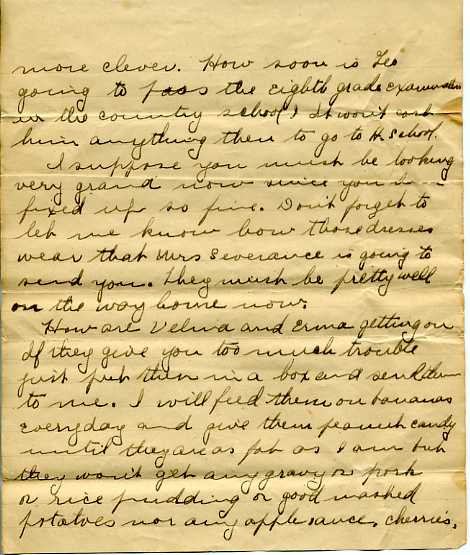 more clever. How soon is Leo
going to pass the eighth grade examination
in the country school? It won't cost
him anything then to go to H. School.
I suppose you must be looking
very grand now since you
fixed up so fine. Don't forget to
let me know how those dresses
wear that Mrs Severance is going to
send you. They must be pretty well
on the way home now.
How are Velma and Erma getting on
If they give you too much trouble
just put them in a box and send them
to me. I will feed them on bananas
everyday and give them peanut candy
until they are as fat as I am but
they won't get any gravy or pork
or rice pudding or good mashed
potatoes nor any apple sauce, cherries,